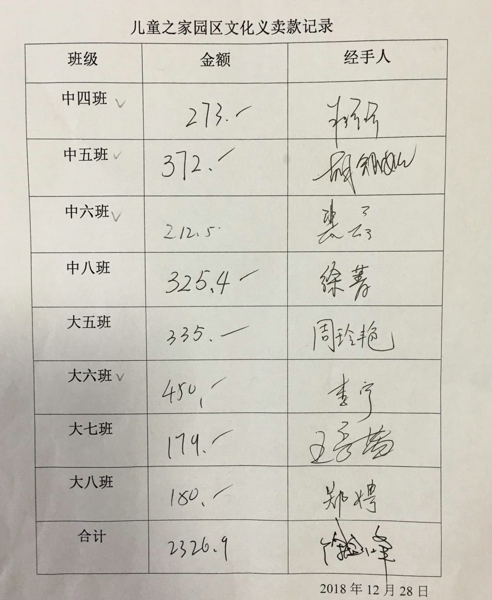 儿童之家园区文化义卖款记录
班级 金额 经手人
中四班 273.
中五班 372.
中六班 212.5
中八班 325.4 徐菁
大五班 335. 周玲艳
大六班 450. 李宁
大七班 179.
大八班 180. 郑娉
合计 2326.9
2018 年 12 月 28 日